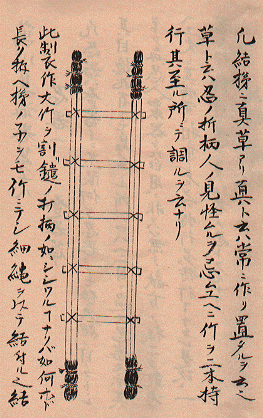 凡結梯ニ真草アリ真ト云ハ常ニ作リ置タルヲ云也
草ト云ハ忍折柄人ノ見怪ムルヲ忌ユヘニ竹ヲ二本持
行其至ル所ニテ調ルヲ云ナリ
此製作大竹ヲ割鑓ノ打柄ノ如シシカルトキハ如何ホド
長ノ梯ノ子ヲモ竹ニテシ細縄ヲ以テ結付ル也結